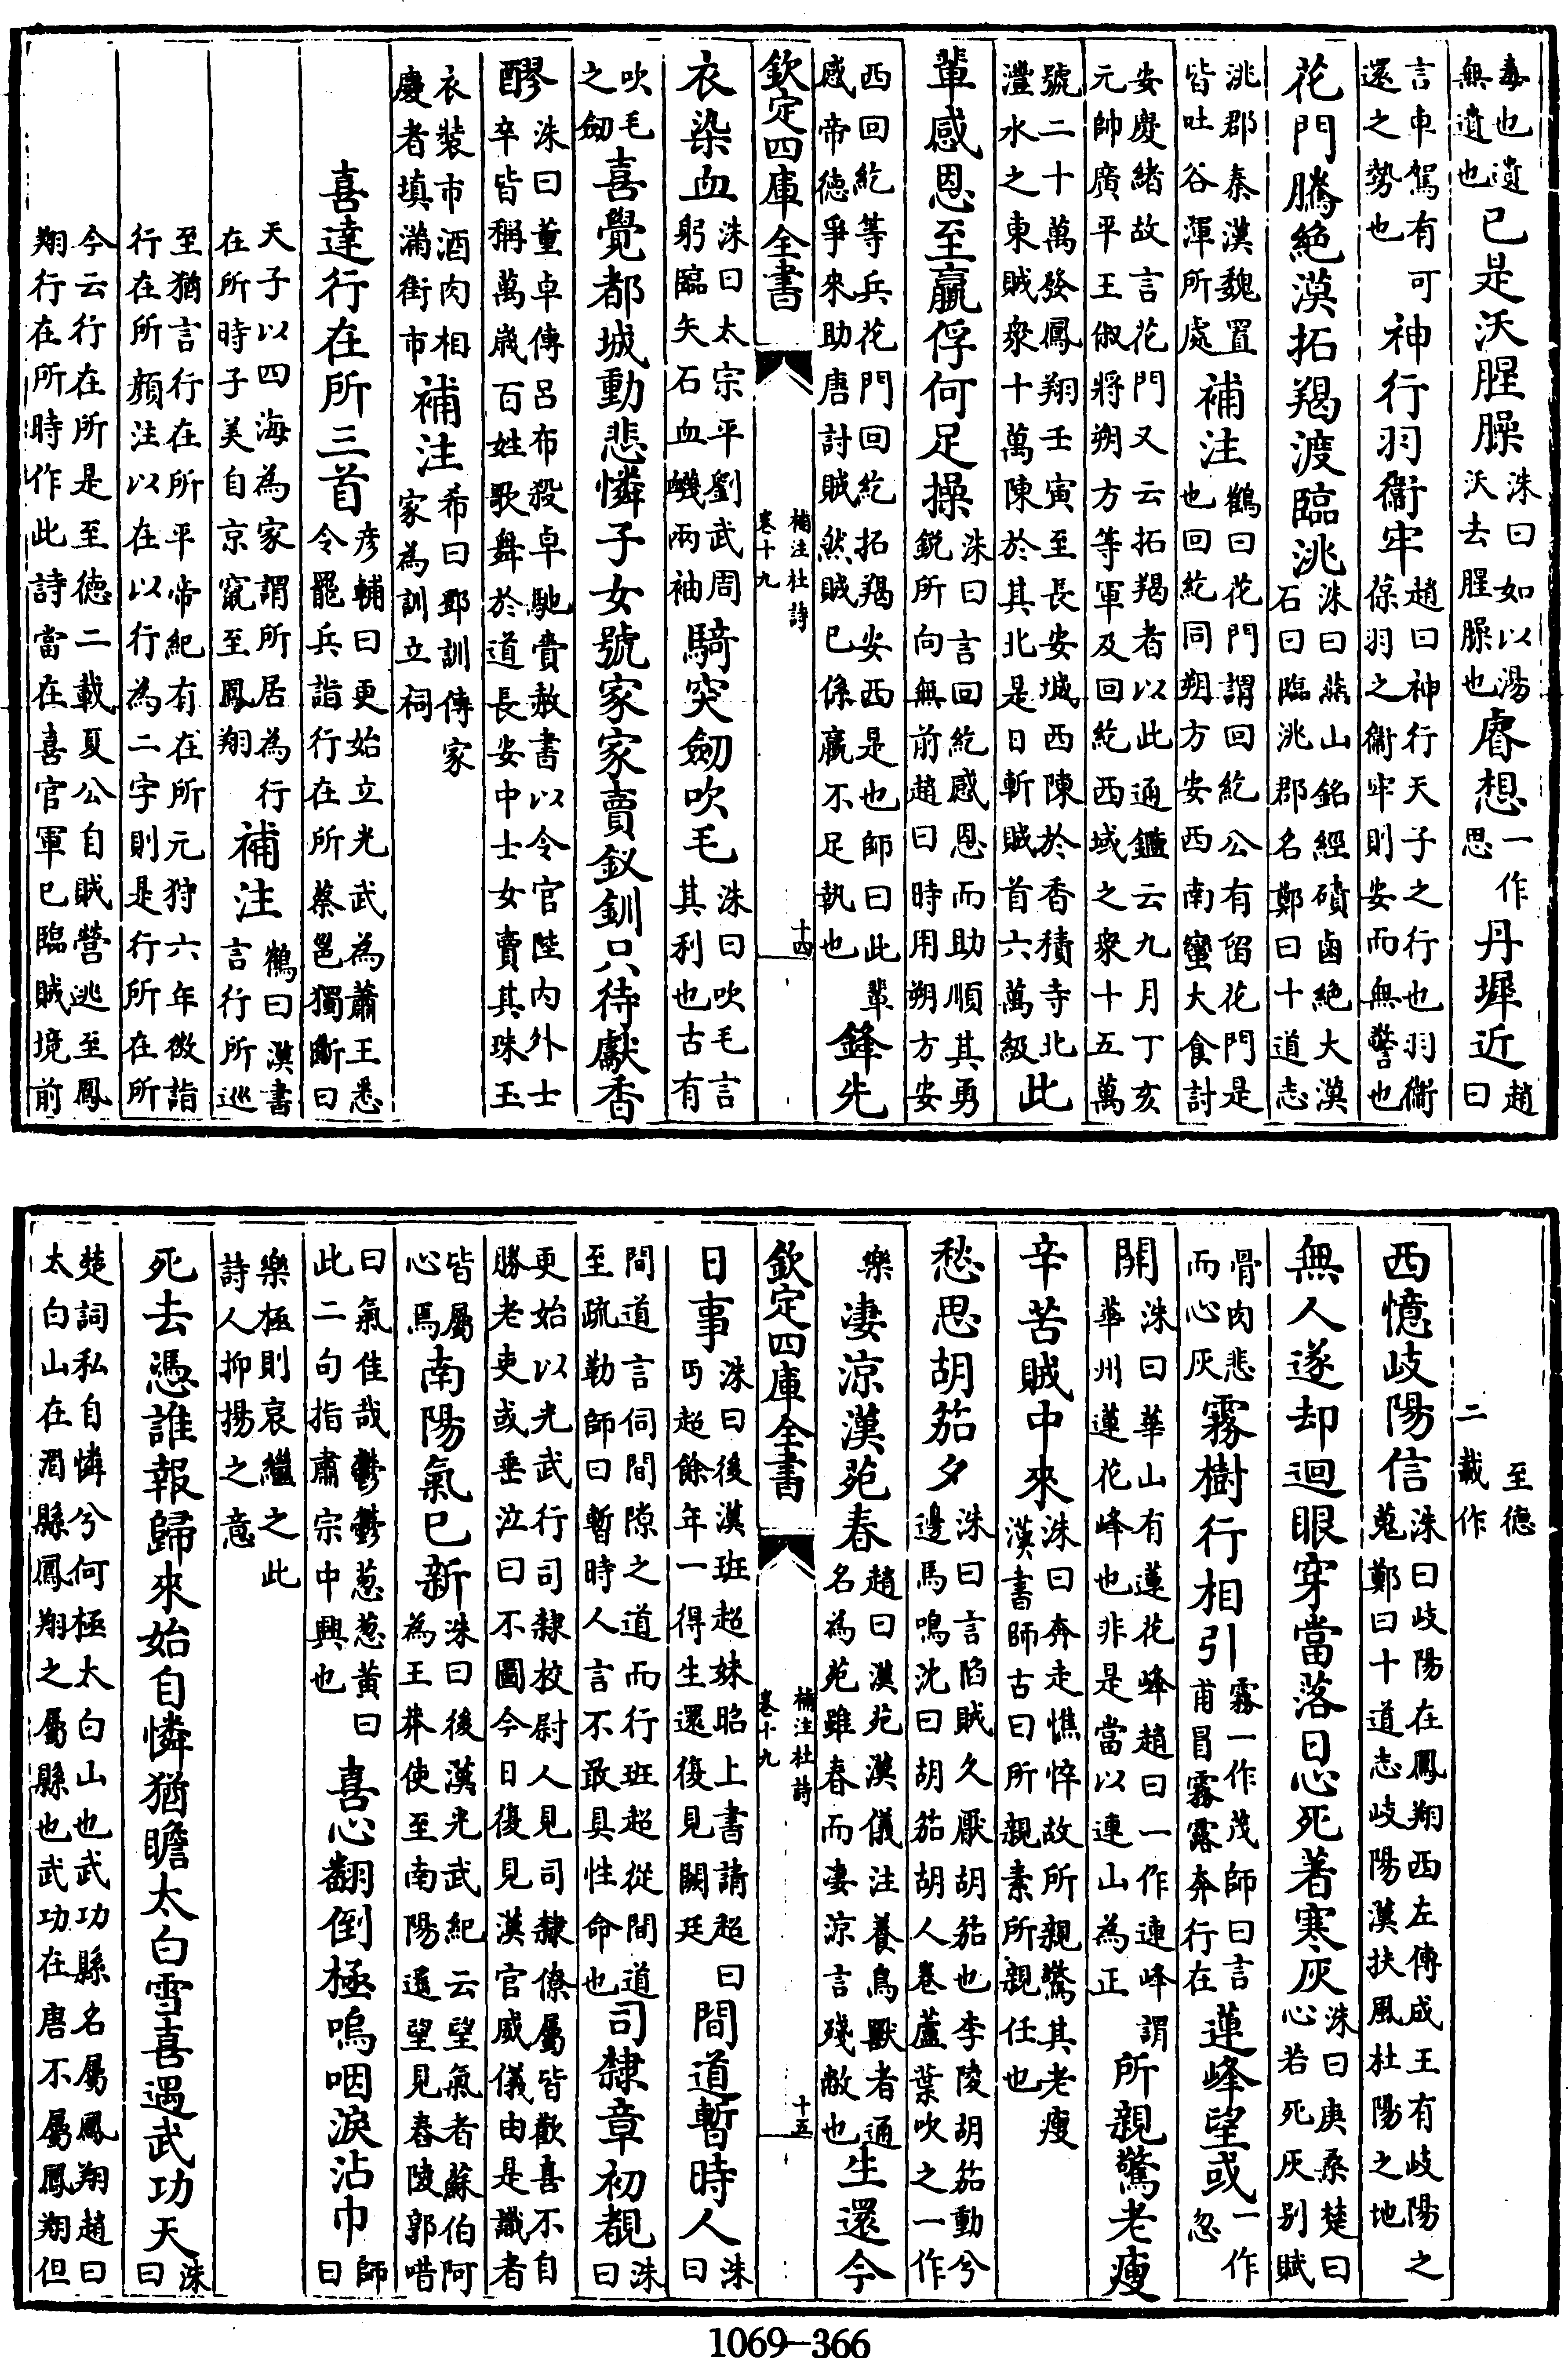 毒也遺無遺也已是沃腥臊洙曰如以湯沃去腥臊也睿想一作思丹墀近趙曰
言車駕有可還之勢也神行羽衞牢趙曰神行天子之行也羽衞葆羽之衞牢則安而無警也
花門騰絶漠拓羯渡臨洮洙曰燕山銘經磧鹵絶大漠石曰臨洮郡名鄭曰十道志
洮郡秦漢魏置皆吐谷渾所處補注鶴曰花門謂回紇公有留花門是也回紇同朔方安西南蠻大食討
安慶緒故言花門又云拓羯者以此通鑑云九月丁亥元帥廣平王俶將朔方等軍及回紇西域之衆十五萬
號二十萬發鳳翔壬寅至長安城西陳於香積寺北灃水之東賊衆十萬陳於其北是日斬賊首六萬級此
輩感恩至羸俘何足操洙曰言回紇感恩而助順其勇鋭所向無前趙曰時用朔方安
西回紇等兵花門回紇拓羯安西是也師曰此輩感帝德爭來助唐討賊然賊已係羸不足執也鋒先
欽定四庫全書 補注杜詩 卷十九 十四
衣染血洙曰太宗平劉武周躬臨矢石血蟣兩袖騎突劒吹毛洙曰吹毛言其利也古有
吹毛之劒喜覺都城動悲憐子女號家家賣釵釧只待獻香
醪洙曰董卓傳呂布殺卓馳賫赦書以令官陛内外士卒皆稱萬歲百姓歌舞於道長安中士女賣其珠玉
衣裝市酒肉相慶者填滿街市補注希曰鄧訓傳家家為訓立祠
喜達行在所三首彦輔曰更始立光武為蕭王悉令罷兵詣行在所蔡邕獨斷曰
天子以四海為家謂所居為行在所時子美自京竄至鳳翔補注鶴曰漢書言行所巡
至猶言行在所平帝紀有在所元狩六年徴詣行在所顔注以在以行為二字則是行所在所
今云行在所是至德二載夏公自賊營逃至鳳翔行在所時作此詩當在喜官軍已臨賊境前
至德二載作
西憶岐陽信洙曰岐陽在鳳翔西左傳成王有岐陽之蒐鄭曰十道志岐陽漢扶風杜陽之地
無人遂却迴眼穿當落日心死著寒灰洙曰庚桑楚曰心若死灰别賦
骨肉悲而心灰霧樹行相引霧一作茂師曰言甫冒霧露奔行在蓮峰望或一作忽
開洙曰華山有蓮花峰趙曰一作連峰謂華州蓮花峰也非是當以連山為正所親驚老瘦
辛苦賊中來洙曰奔走憔悴故所親驚其老瘦漢書師古曰所親素所親任也
愁思胡笳夕洙曰言陷賊久厭胡笳也李陵胡笳動兮邊馬鳴沈曰胡笳胡人卷蘆葉吹之一作
樂淒涼漢苑春趙曰漢苑漢儀注養鳥獸者通名為苑雖春而淒涼言殘敝也生還今
欽定四庫全書 補注杜詩 卷十九 十五
日事洙曰後漢班超妹昭上書請超曰丐超餘年一得生還復見闕廷間道暫時人洙曰
間道言伺間隙之道而行班超從間道至疏勒師曰暫時人言不敢具性命也司隸章初覩洙曰
更始以光武行司隸校尉人見司隸僚屬皆歡喜不自勝老吏或垂泣曰不圖今日復見漢官威儀由是識者
皆屬心焉南陽氣已新洙曰後漢光武紀云望氣者蘇伯阿為王莽使至南陽遥望見舂陵郭唶
曰氣佳哉鬱鬱葱葱黄曰此二句指肅宗中興也喜心翻倒極嗚咽淚沾巾師曰
樂極則哀繼之此詩人抑揚之意
死去憑誰報歸來始自憐猶瞻太白雪喜遇武功天洙曰
楚詞私自憐兮何極太白山也武功縣名屬鳳翔趙曰太白山在湄縣鳳翔之屬縣也武功在唐不屬鳳翔但
1069-366